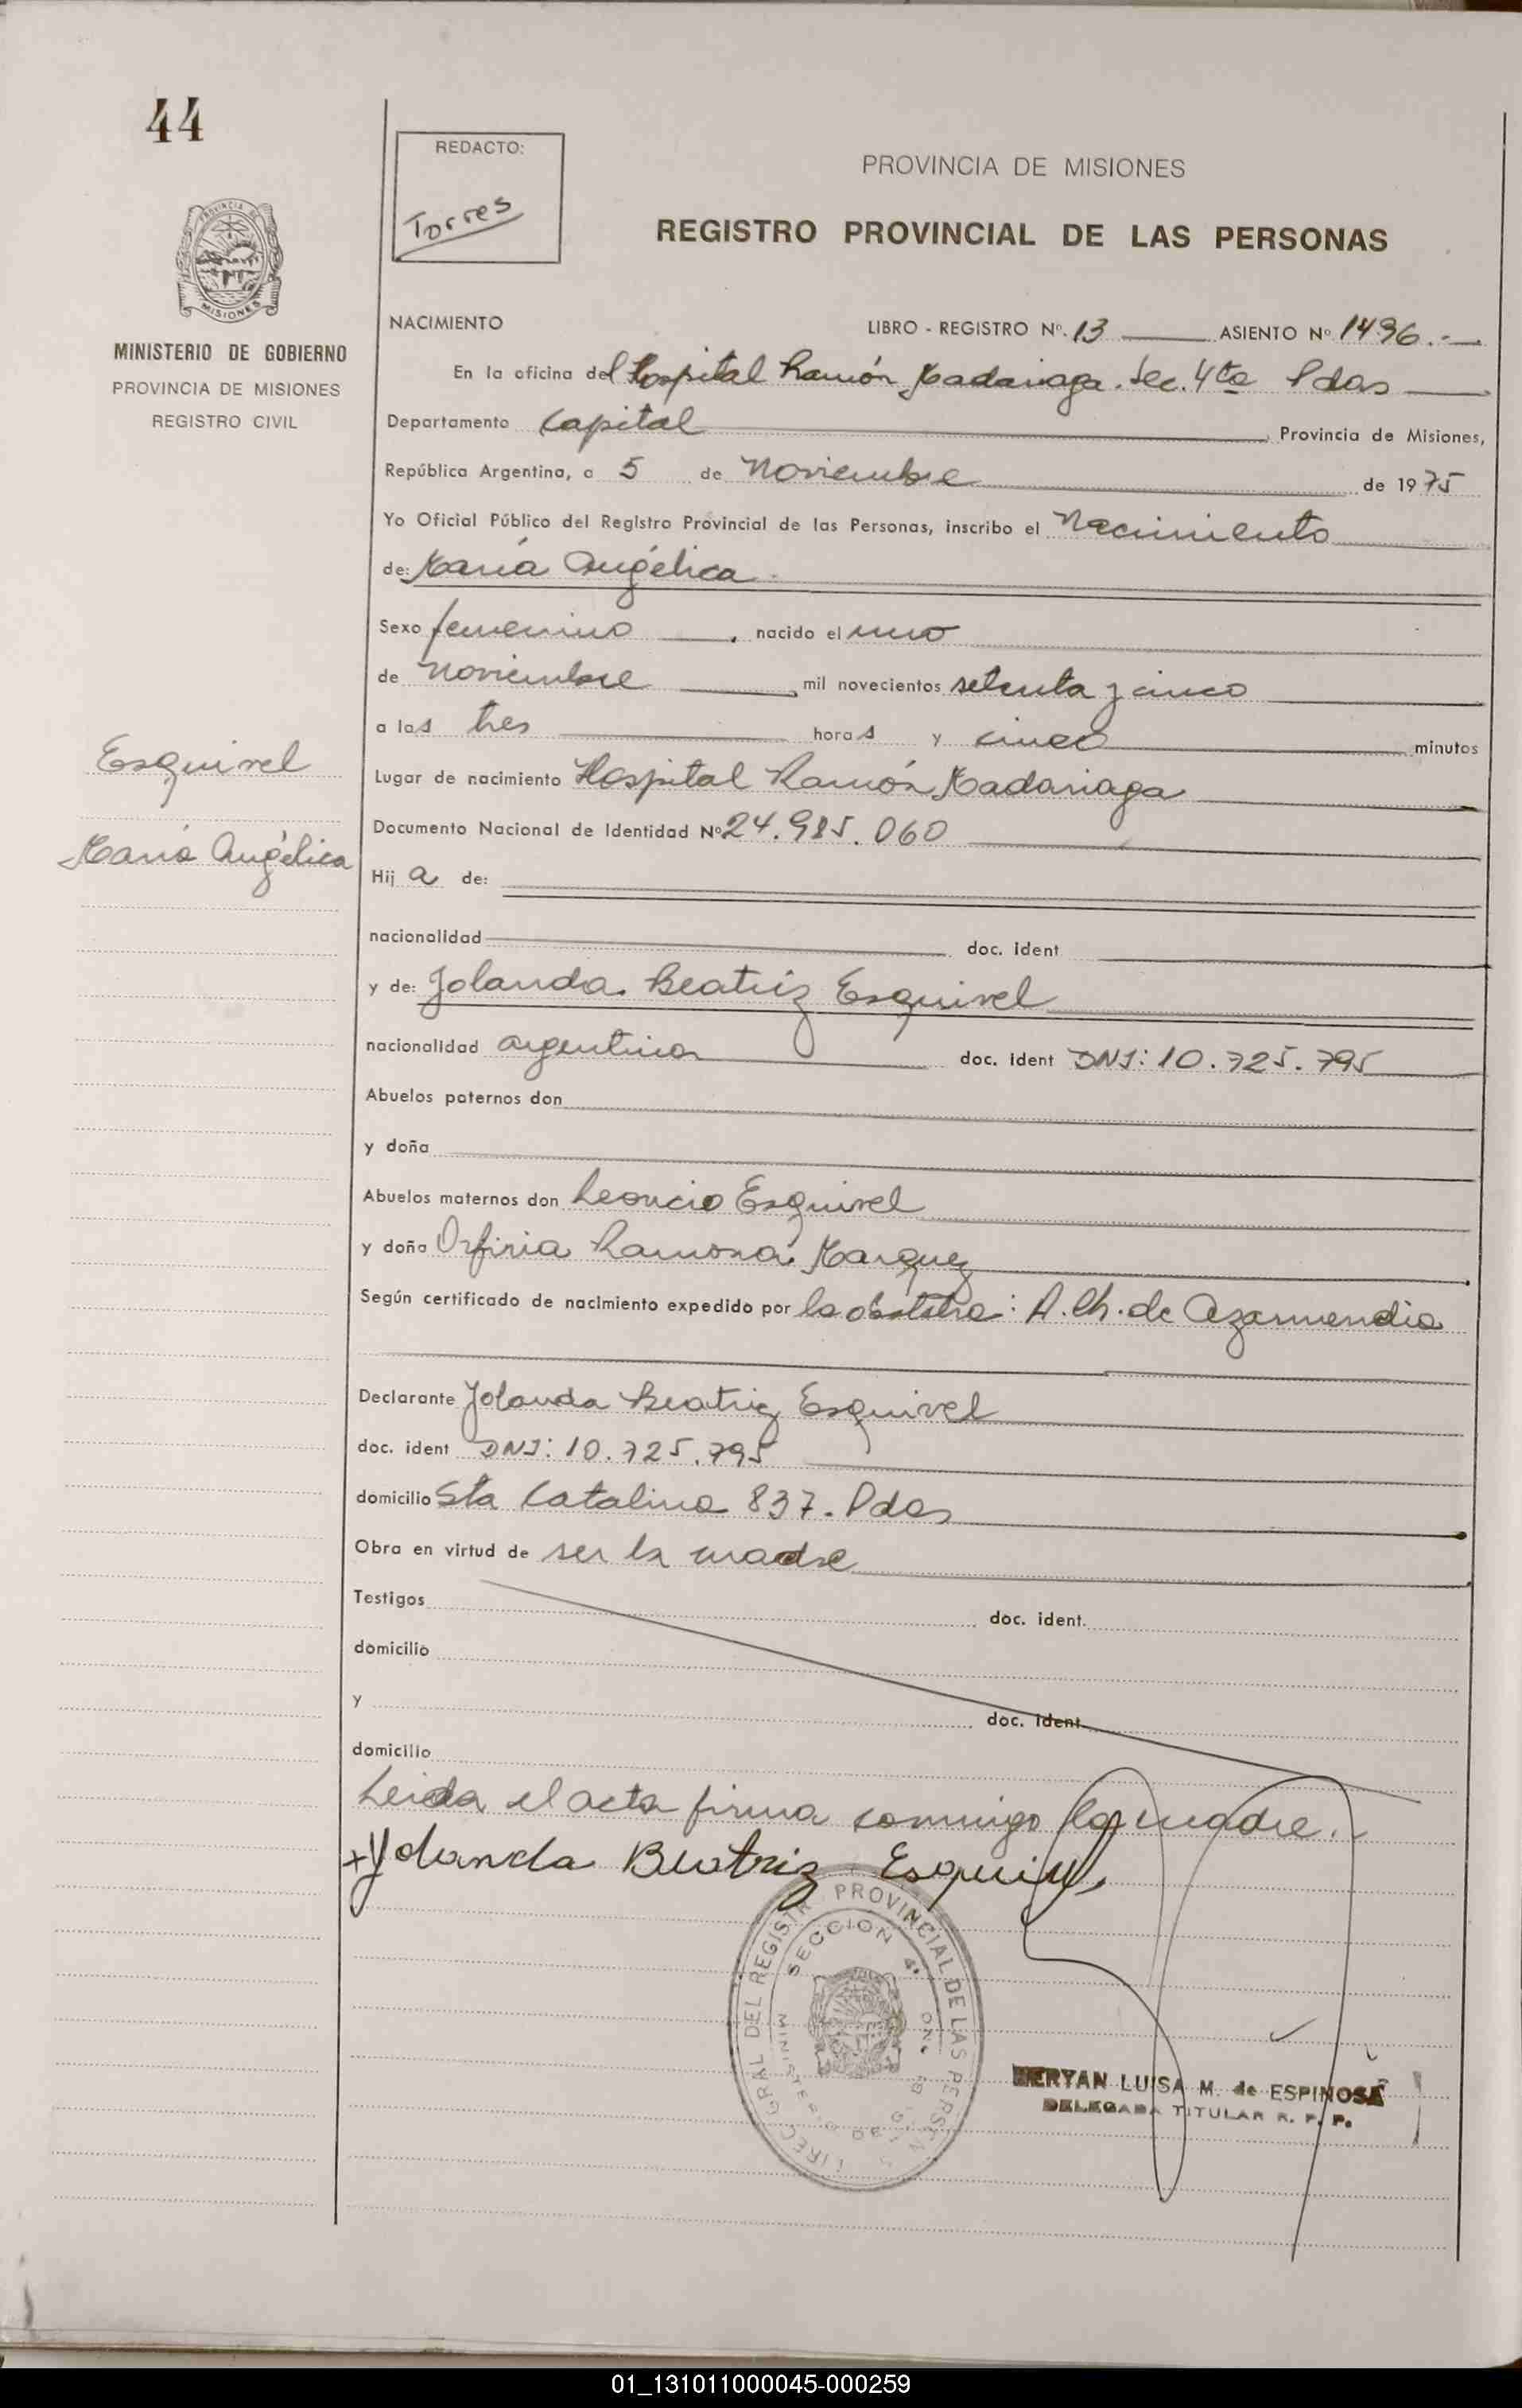 44
REDACTO:
Torres
PROVINCIA DE MISIONES
REGISTRO PROVINCIAL DE LAS PERSONAS
MISIONES
MINISTERIO DE GOBIERNO
PROVINCIA DE MISIONES
REGISTRO CIVIL
NACIMIENTO LIBRO - REGISTRO Nº. 13 ASIENTO Nº 1496.-
En la oficina del Hospital Ramón Madariaga. Sec. 4ta Pdas
Departamento Capital Provincia de Misiones,
República Argentina, a 5 de Noviembre de 1975
Yo Oficial Público del Registro Provincial de las Personas, inscribo el Nacimiento
de: María Angélica
Sexo femenino, nacido el uno
de Noviembre, mil novecientos setenta y cinco
a las tres horas y cinco minutos
Esquivel
Lugar de nacimiento Hospital Ramón Madariaga
María Angélica
Documento Nacional de Identidad Nº 24.985.060
Hij a de:
nacionalidad doc. ident
y de: Yolanda Beatriz Esquivel
nacionalidad argentina doc. ident DNI: 10.725.795
Abuelos paternos don
y doña
Abuelos maternos don Leoncio Esquivel
y doña Orfiria Ramona Marquez
Según certificado de nacimiento expedido por la obstetra: A. Ch. de Azarmendia
Declarante Yolanda Beatriz Esquivel
doc. ident DNI: 10.725.795
domicilio Sta Catalina 837. Pdas
Obra en virtud de ser la madre
Testigos doc. ident.
domicilio
y doc. ident
domicilio
Leida el acta firma conmigo la madre.-
+Yolanda Beatriz Esquivel
PROVINCIAL DE LAS
SECCION 4ª
LUISA M. de ESPINOSA
DELEGADA TITULAR R. P. P.
01_131011000045-000259